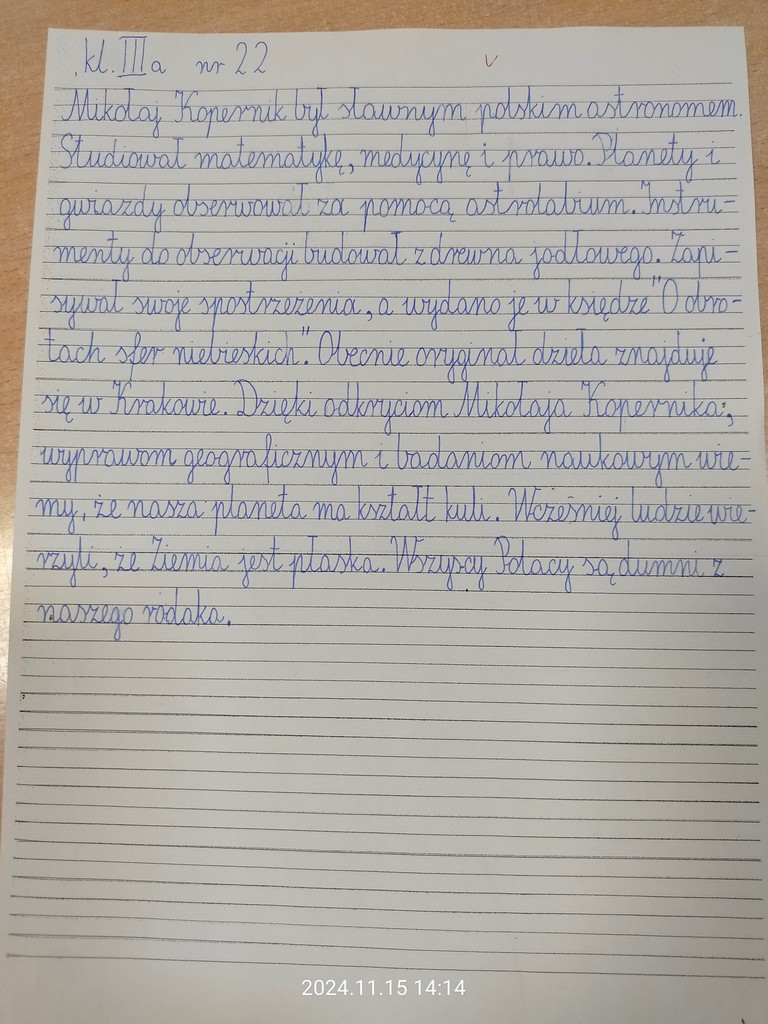 kl. III a nr 22
Mikołaj Kopernik był sławnym polskim astronomem.
Studiował matematykę, medycynę i prawo. Planety i
gwiazdy obserwował za pomocą astrolabium. Instru-
menty do obserwacji budował z drewna jodłowego. Zapi-
sywał swoje spostrzeżenia, a wydano je w księdze "O obro-
tach sfer niebieskich". Obecnie oryginał dzieła znajduje
się w Krakowie. Dzięki odkryciom Mikołaja Kopernika,
wyprawom geograficznym i badaniom naukowym wie-
my, że nasza planeta ma kształt kuli. Wcześniej ludzie wie-
rzyli, że Ziemia jest płaska. Wszyscy Polacy są dumni z
naszego rodaka.
2024.11.15 14:14